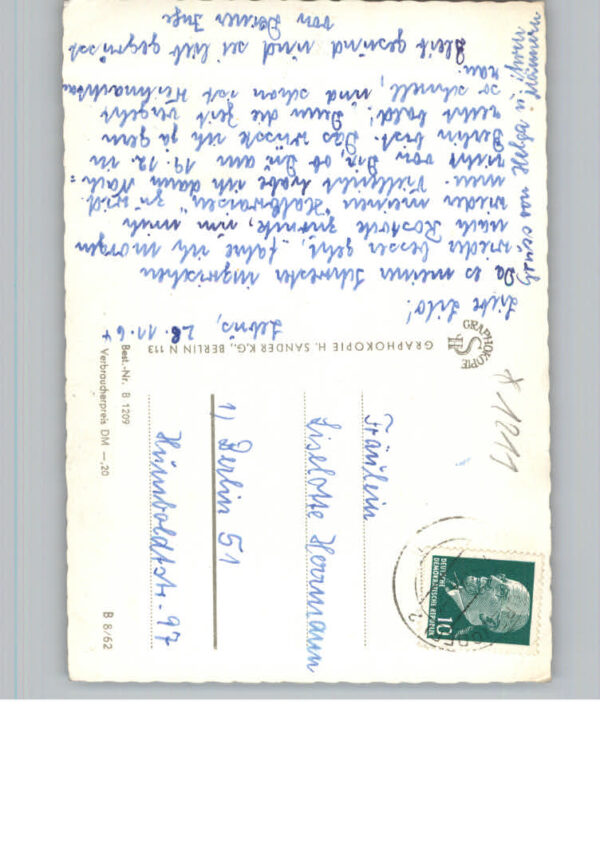 Lebus, 28.11.64
Liebe Lilo!
Da es meiner Schwester inzwischen
wieder besser geht, fahre ich morgen
nach Rostock zurück, um mich
wieder meinen "Halbwaisen" zu wid-
men. Vielleicht habe ich dann Nach=
richt von Dir, ob Du am 19.12. in
Berlin bist. Das wüsste ich ja gern
recht bald! Denn die Zeit vergeht
so schnell, und schon ist Weihnachten
ran.
Bleib gesund und sei lieb gegrüsst
von Deiner Inge
GRAPHOKOPIE
H S
GRAPHOKOPIE H. SANDER K.G., BERLIN N 113
Best.-Nr. B 1209
Verbraucherpreis DM —,20
x 1211
DEUTSCHE
DEMOKRATISCHE REPUBLIK
10
Fräulein
Liselotte Herrmann
1) Berlin 51
Humboldtstr. 97
B 8/62